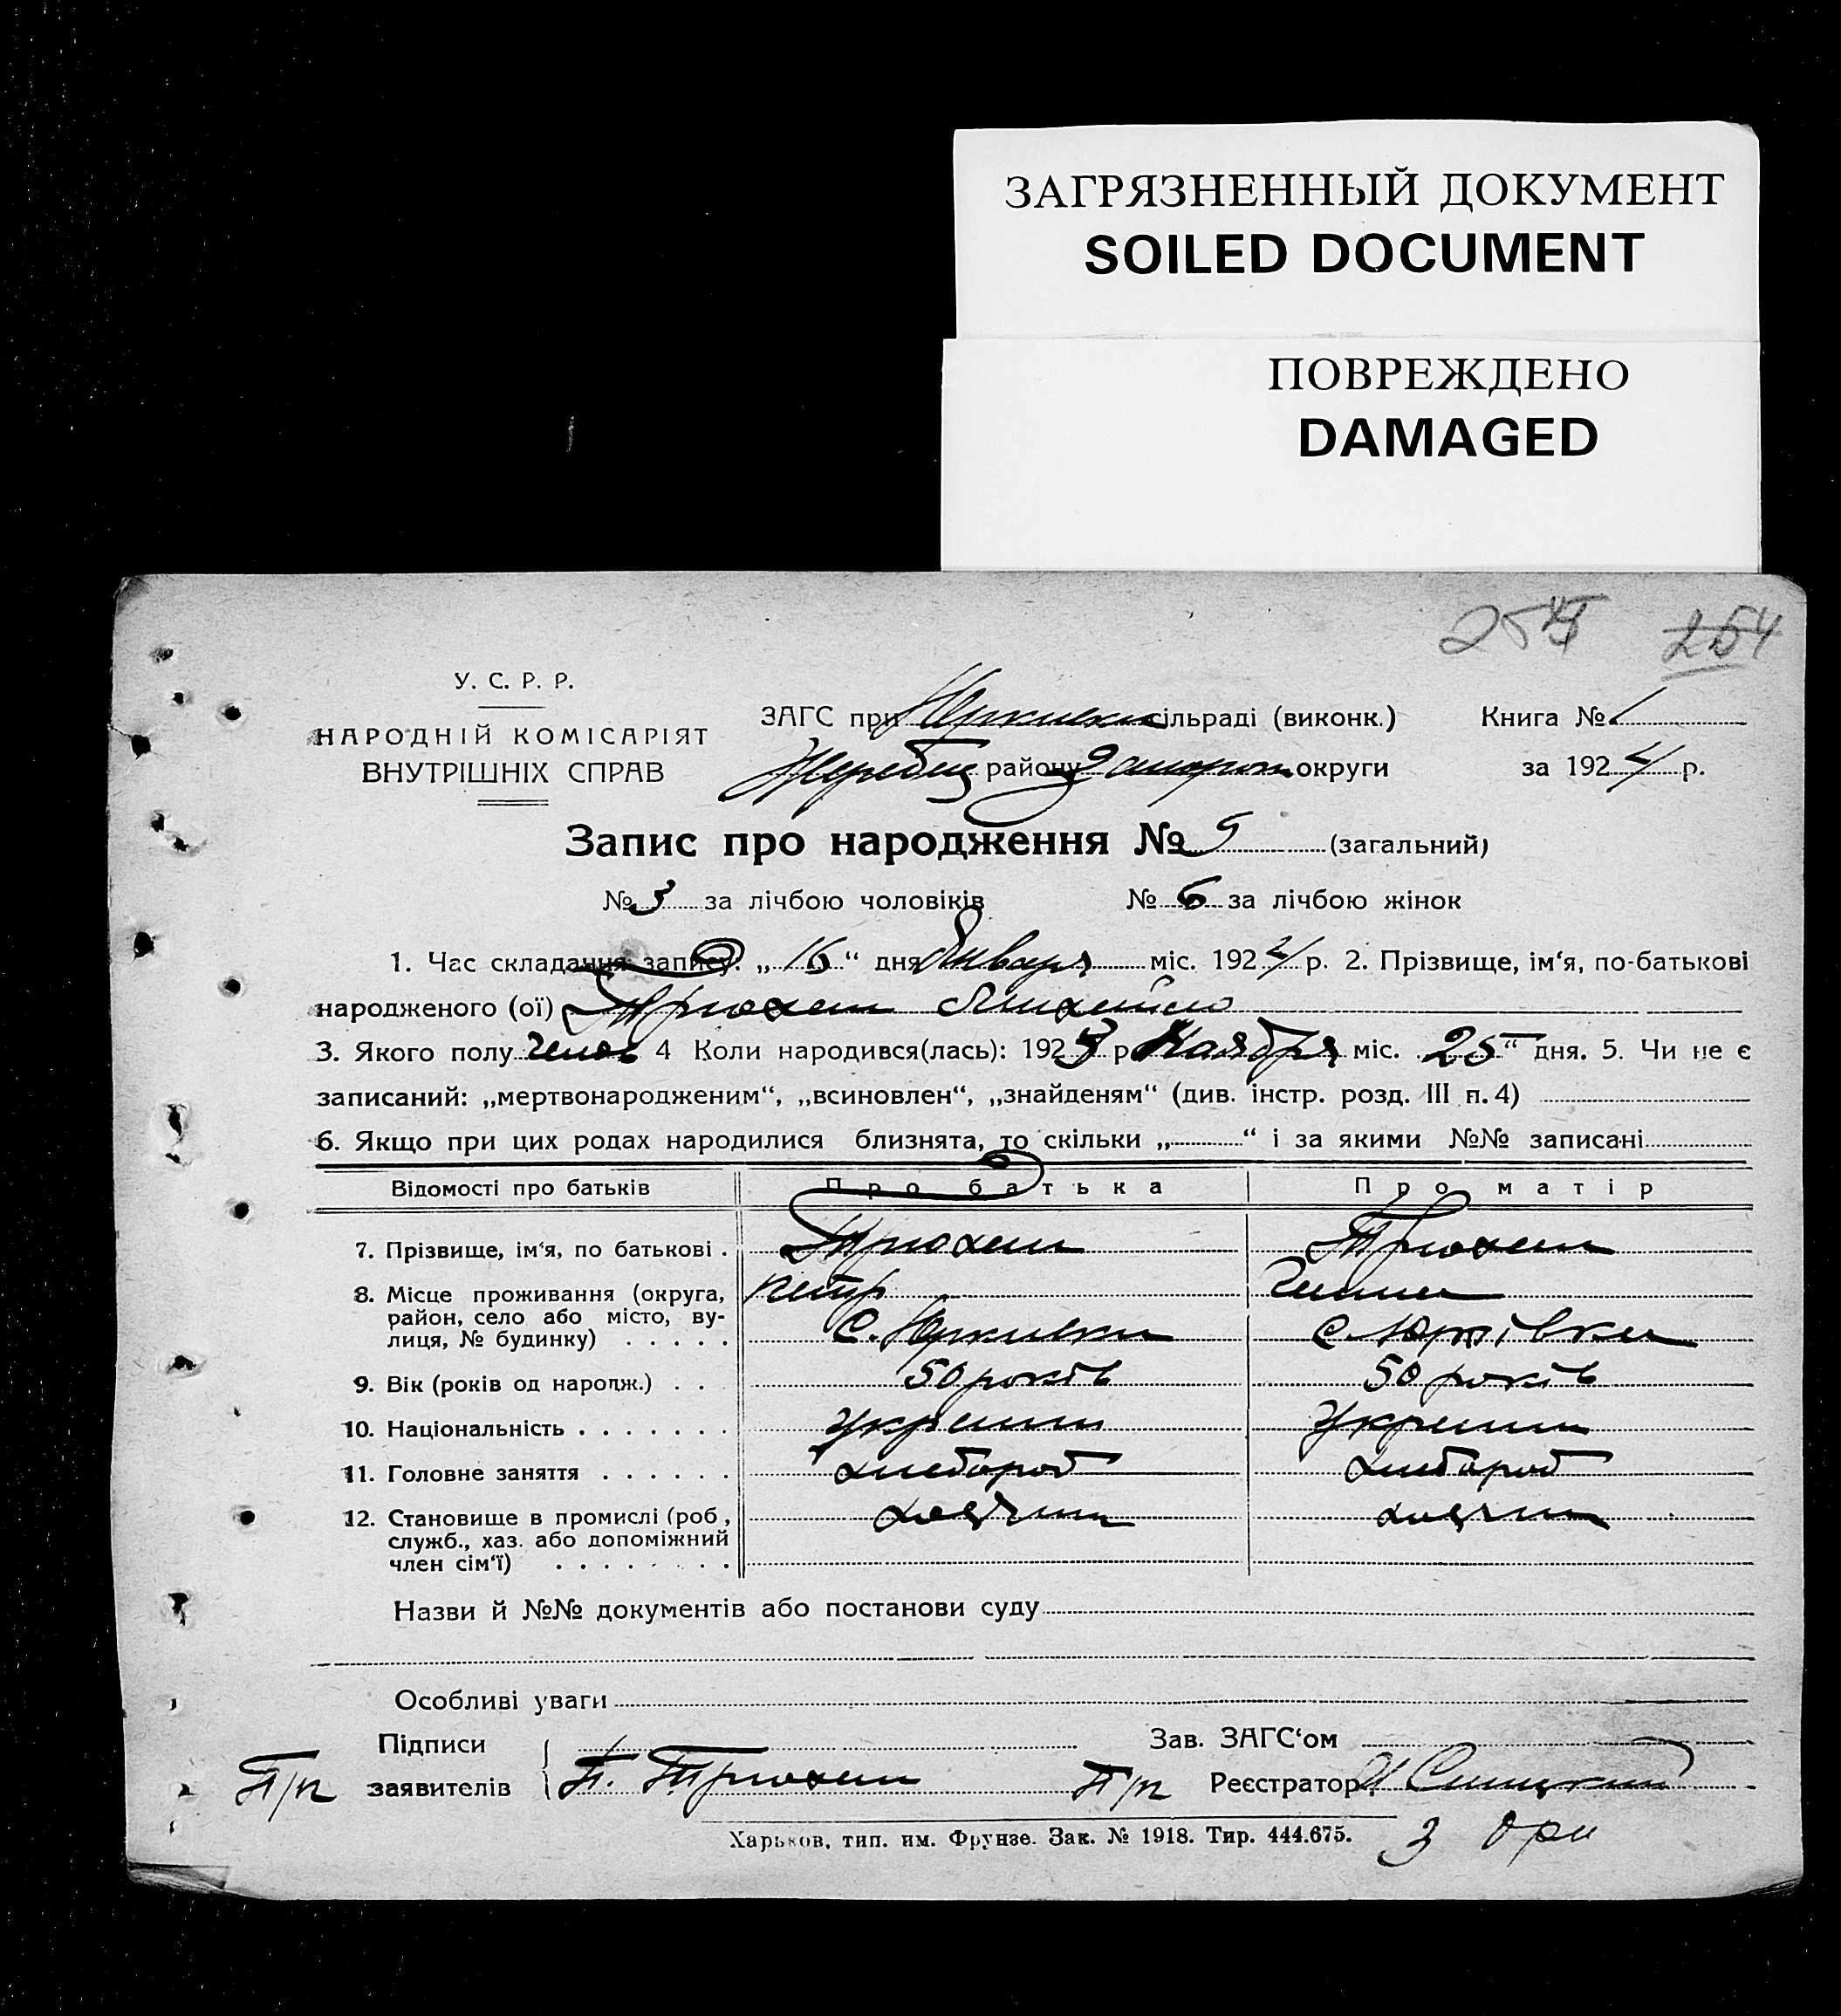 ЗАГРЯЗНЕННЫЙ ДОКУМЕНТ
SOILED DOCUMENT
ПОВРЕЖДЕНО
DAMAGED
254
У. С. Р. Р.
НАРОДНІЙ КОМІСАРІЯТ
ВНУТРІШНІХ СПРАВ
ЗАГС при Юркивки сільраді (виконк.) Книга № 1
Жеребец району Запорож округи за 1924 р.
Запис про народження № 9 (загальний)
№ 3 за лічбою чоловіків № 6 за лічбою жінок
1. Час складання запису: „ 16 “ дня Января міс. 1924 р. 2. Прізвище, ім'я, по-батькові
народженого (ої) Трюхан Михайло
3. Якого полу чолов 4 Коли народився(лась): 1923 р. Ноября міс. 25 “ дня. 5. Чи не є
записаний: „мертвонародженим“, „всиновлен“, „знайденям“ (див. інстр. розд. III п. 4)
6. Якщо при цих родах народилися близнята, то скільки „ “ і за якими №№ записані
Відомості про батьків Про батька Про матір
7. Прізвище, ім'я, по батькові . Трюхан Трюхан
8. Місце проживання (округа, Петр
район, село або місто, ву-
лиця, № будинку) . . . . . С. Юркивки С. Юрківки
9. Вік (років од народж.) . . 50 років 50 років
10. Національність . . . . . . . украин украин
11. Головне заняття . . . . . . хлебороб хлебороб
12. Становище в промислі (роб., хазяин хазяин
служб., хаз. або допоміжний
член сім'ї) . . . . . . . .
Назви й №№ документів або постанови суду
Особливі уваги
Підписи Зав. ЗАГС'ом
П/п заявителів П. Трюхан П/п Реєстратор
Харьков, тип. им. Фрунзе. Зак. № 1918. Тир. 444.675.